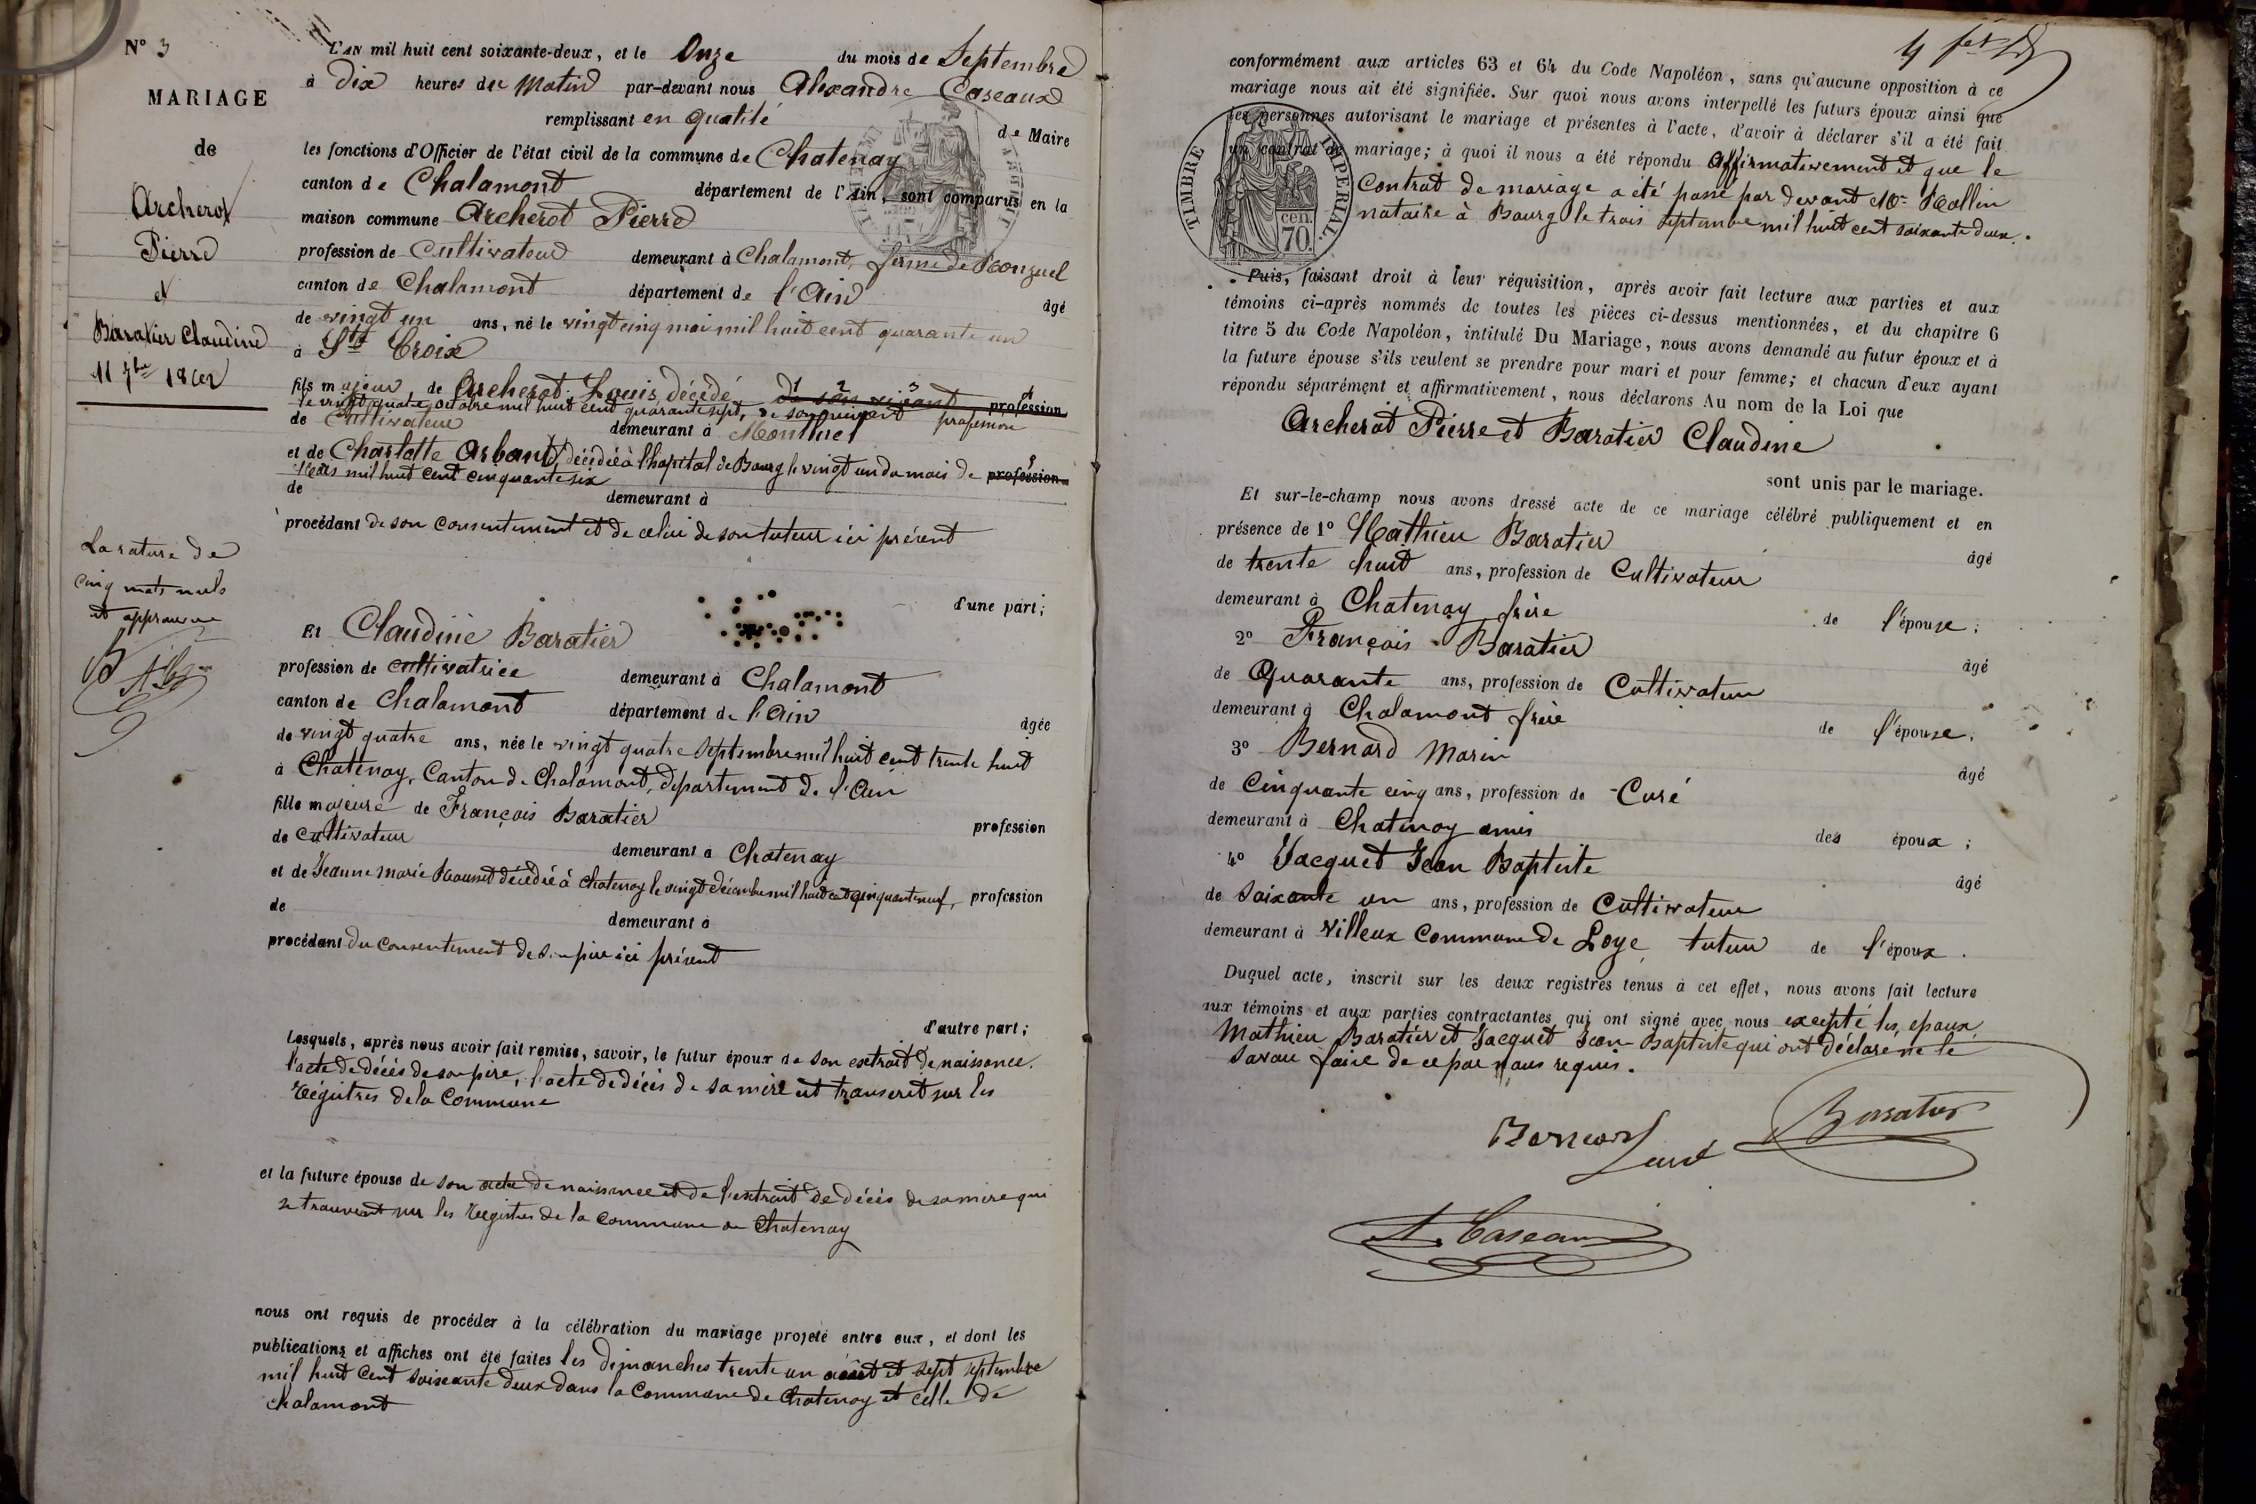 N° 3
MARIAGE
de
Archerot
Pierre
et
Baratier Claudine
11 7bre 1862
La rature de
cinq mots nuls
est approuvée
L'AN mil huit cent soixante-deux, et le Onze du mois de Septembre
à dix heures du Matin par-devant nous Alexandre Caseaux
remplissant en qualité de Maire
les fonctions d'Officier de l'état civil de la commune de Chatenay
canton de Chalamont département de l'Ain, sont comparus en la
maison commune Archerot Pierre
profession de Cultivateur demeurant à Chalamont, ferme de Ronzuel
canton de Chalamont département de l'Ain âgé
de vingt un ans, né le vingt cinq mai mil huit cent quarante un
à Ste Croix
fils majeur de Archerot Louis, décédé, de son vivant profession
le vingt quatre octobre mil huit cent quarante sept, de son vivant profession
de Cultivateur demeurant à Montluel
et de Charlotte Arband, décédée à l'hopital de Bourg le vingt un du mois de profession
Mars mil huit cent cinquante six
de demeurant à
procédant de son consentement et de celui de son tuteur ici présent
d'une part;
Et Claudine Baratier
profession de cultivatrice demeurant à Chalamont
canton de Chalamont département de l'Ain âgée
de vingt quatre ans, née le vingt quatre Septembre mil huit cent trente huit
à Chatenay, Canton de Chalamont, département de l'Ain
fille majeure de François Baratier profession
de Cultivateur demeurant à Chatenay
et de Jeanne Marie Rousset décédée à Chatenay le vingt Décembre mil huit cent cinquante neuf, profession
de demeurant à
procédant du consentement de son père ici présent
d'autre part;
Lesquels, après nous avoir fait remise, savoir, le futur époux de son extrait de naissance.
l'acte de décès de son père, l'acte de décès de sa mère est transcrit sur les
Régistres de la Commune
et la future épouse de son acte de naissance et de l'extrait de décès de sa mère qui
se trouvent sur les Régistres de la Commune de Chatenay
nous ont requis de procéder à la célébration du mariage projeté entre eux, et dont les
publications et affiches ont été faites les dimanches trente un août et sept septembre
mil huit cent soixante deux dans la Commune de Chatenay et celle de
Chalamont
4
conformément aux articles 63 et 64 du Code Napoléon, sans qu'aucune opposition à ce
mariage nous ait été signifiée. Sur quoi nous avons interpellé les futurs époux ainsi que
les personnes autorisant le mariage et présentes à l'acte, d'avoir à déclarer s'il a été fait
un contrat de mariage; à quoi il nous a été répondu affirmativement et que le
Contrat de mariage a été passé par devant Me Rollin
notaire à Bourg le trois septembre mil huit cent soixante deux.
TIMBRE IMPERIAL
cen.
70.
Puis, faisant droit à leur réquisition, après avoir fait lecture aux parties et aux
témoins ci-après nommés de toutes les pièces ci-dessus mentionnées, et du chapitre 6
titre 5 du Code Napoléon, intitulé Du Mariage, nous avons demandé au futur époux et à
la future épouse s'ils veulent se prendre pour mari et pour femme; et chacun d'eux ayant
répondu séparément et affirmativement, nous déclarons Au nom de la Loi que
Archerot Pierre et Baratier Claudine
sont unis par le mariage.
Et sur-le-champ nous avons dressé acte de ce mariage célébré publiquement et en
présence de 1° Mathieu Baratier âgé
de trente huit ans, profession de Cultivateur
demeurant à Chatenay frère de l'épouse;
2° François Baratier âgé
de Quarante ans, profession de Cultivateur
demeurant à Chalamont frère de l'épouse,
3° Bernard Marin âgé
de Cinquante cinq ans, profession de Curé
demeurant à Chatenay amis des époux;
4° Jacquet Jean Baptiste âgé
de Soixante un ans, profession de Cultivateur
demeurant à Villeux Commune de Loye, tuteur de l'époux.
Duquel acte, inscrit sur les deux registres tenus à cet effet, nous avons fait lecture
aux témoins et aux parties contractantes qui ont signé avec nous excepté les epoux,
Mathieu Baratier et Jacquet Jean Baptiste qui ont déclaré ne le
Savoir faire de ce par nous requis.
Bernard Baratier
curé
A. Caseaux